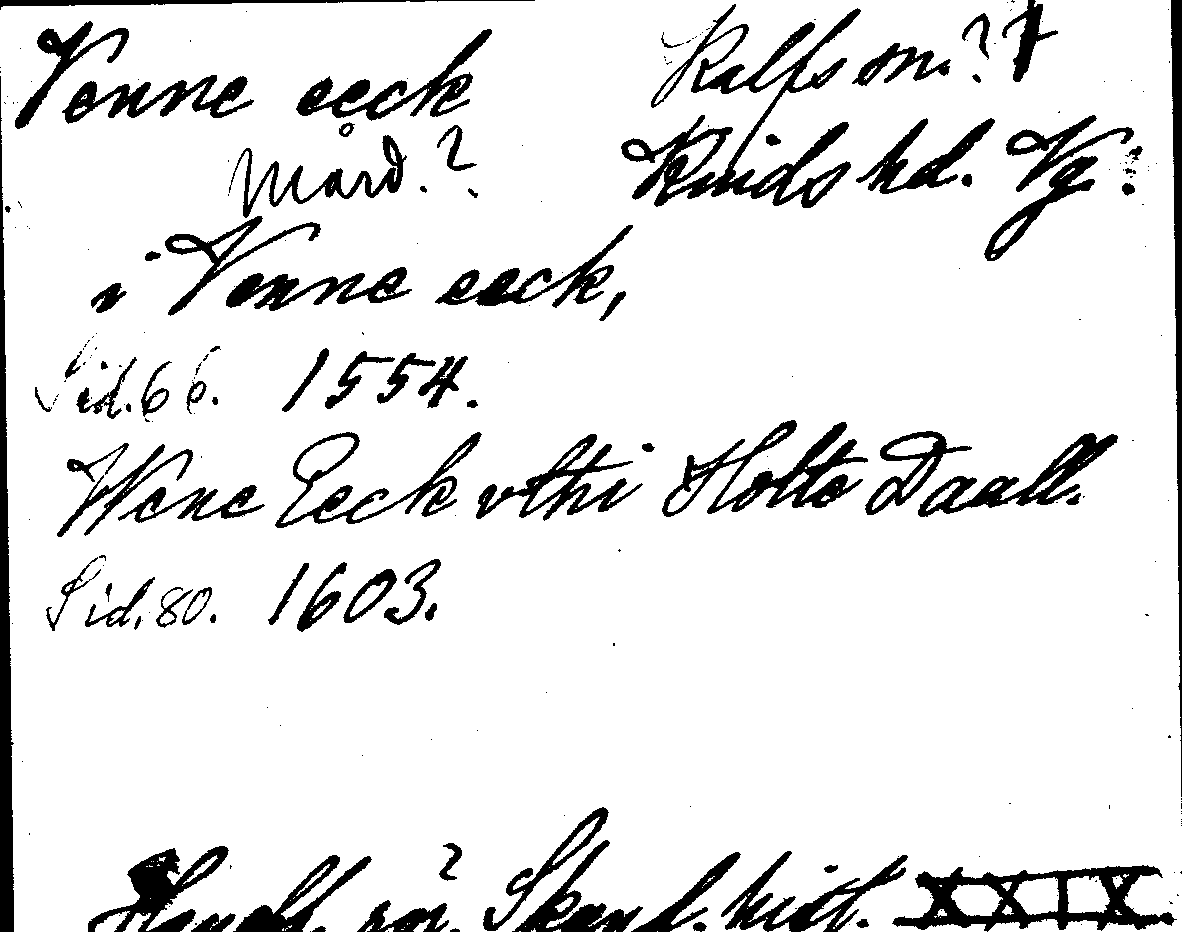 Venne eeck Kalfs sn.? †
Mård.? Kinds hd. Vg.:
i Venne eeck,
Sid. 66. 1554.
Wene Eeck vthi Holte Daall.
Sid. 80. 1603.
Handl. rör. Skand. hist. XXIX.